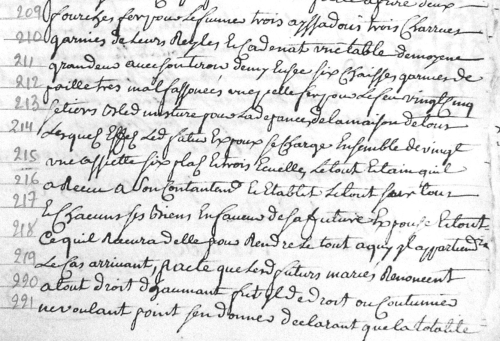 209 fourches fer pour le fumier trois assadouis trois Charrues
210 garnies de Leurs Reylles Et Cadenat une table de moyene
211 grandeur avec son tiroir demy Usee six Chaisses garnies de
212 paille tres mal fassonées une pelle fer pour Le feu vingt Cinq
213 setiers bled misture pour La depance de la maison de tous
214 Lesquels Effets Led futur Expoux se Charge Ensemble de vingt
une assiette six plats Et trois Ecuelles Le tout Etain quil
215 a Receu a son Contantemt Et Etablit Le tout sur tous
216 Et Chacuns ses biens En faveur de sa future Expouse Et tout
217 Ce quil Recevra delle pour Rendre Le tout a quy Il appartiendra
218 Le Cas arrivant, pacte que Lesd futurs maries Renoncent
219 a tout droit daugmant fut Il de droit ou Coutumier
220 ne voulant point sen donner declarant que la totalite
221